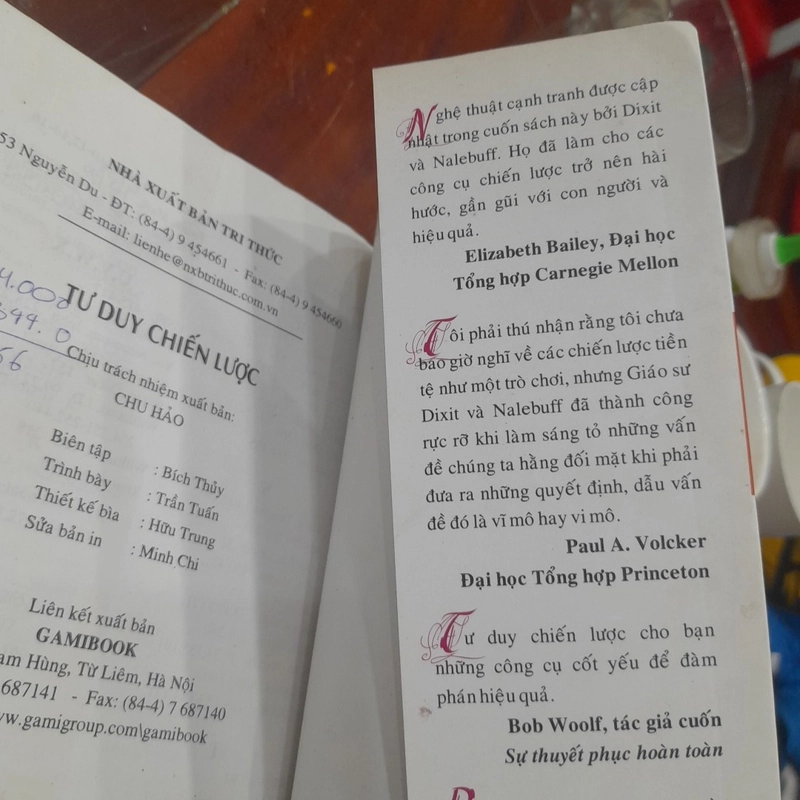 NHÀ XUẤT BẢN TRI THỨC
53 Nguyễn Du - ĐT: (84-4) 9 454661 - Fax: (84-4) 9 454660
E-mail: lienhe@nxbtrithuc.com.vn
TƯ DUY CHIẾN LƯỢC
Chịu trách nhiệm xuất bản:
CHU HẢO
Biên tập : Bích Thủy
Trình bày : Trần Tuấn
Thiết kế bìa : Hữu Trung
Sửa bản in : Minh Chi
Liên kết xuất bản
GAMIBOOK
Hùng, Từ Liêm, Hà Nội
687141 - Fax: (84-4) 7 687140
www.gamigroup.com\gamibook
Nghệ thuật cạnh tranh được cập
nhật trong cuốn sách này bởi Dixit
và Nalebuff. Họ đã làm cho các
công cụ chiến lược trở nên hài
hước, gần gũi với con người và
hiệu quả.
Elizabeth Bailey, Đại học
Tổng hợp Carnegie Mellon
Tôi phải thú nhận rằng tôi chưa
bao giờ nghĩ về các chiến lược tiền
tệ như một trò chơi, nhưng Giáo sư
Dixit và Nalebuff đã thành công
rực rỡ khi làm sáng tỏ những vấn
đề chúng ta hằng đối mặt khi phải
đưa ra những quyết định, dẫu vấn
đề đó là vĩ mô hay vi mô.
Paul A. Volcker
Đại học Tổng hợp Princeton
Tư duy chiến lược cho bạn
những công cụ cốt yếu để đàm
phán hiệu quả.
Bob Woolf, tác giả cuốn
Sự thuyết phục hoàn toàn